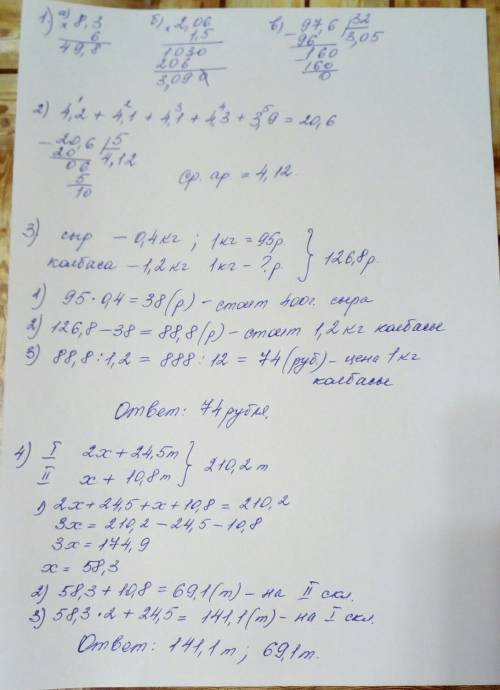 1) а) × 8,3 б) × 2,06 в) - 97,6 | 32
6 1,5 96 3,05
49,8 1030 160
206 160
3,090 0
2) 4,2 + 4,1 + 4,1 + 4,3 + 3,9 = 20,6
1 2 3 4 5
- 20,6 | 5
20 4,12
06
5
10
ср. ар = 4,12.
3) сыр – 0,4кг ; 1кг = 95р
колбаса – 1,2кг 1кг – ? р. } 126,8р.
1) 95 · 0,4 = 38 (р) – стоит 400г. сыра
2) 126,8 – 38 = 88,8 (р) – стоит 1,2 кг колбасы
3) 88,8 : 1,2 = 888 : 12 = 74 (руб.) – цена 1кг
колбасы
Ответ: 74 рубля.
4) I 2х + 24,5т
II х + 10,8т } 210,2т
1) 2х + 24,5 + х + 10,8 = 210,2
3х = 210,2 – 24,5 – 10,8
3х = 174,9
х = 58,3
2) 58,3 + 10,8 = 69,1 (т) – на II скл.
3) 58,3 · 2 + 24,5 = 141,1 (т) – на I скл.
Ответ: 141,1т ; 69,1т.